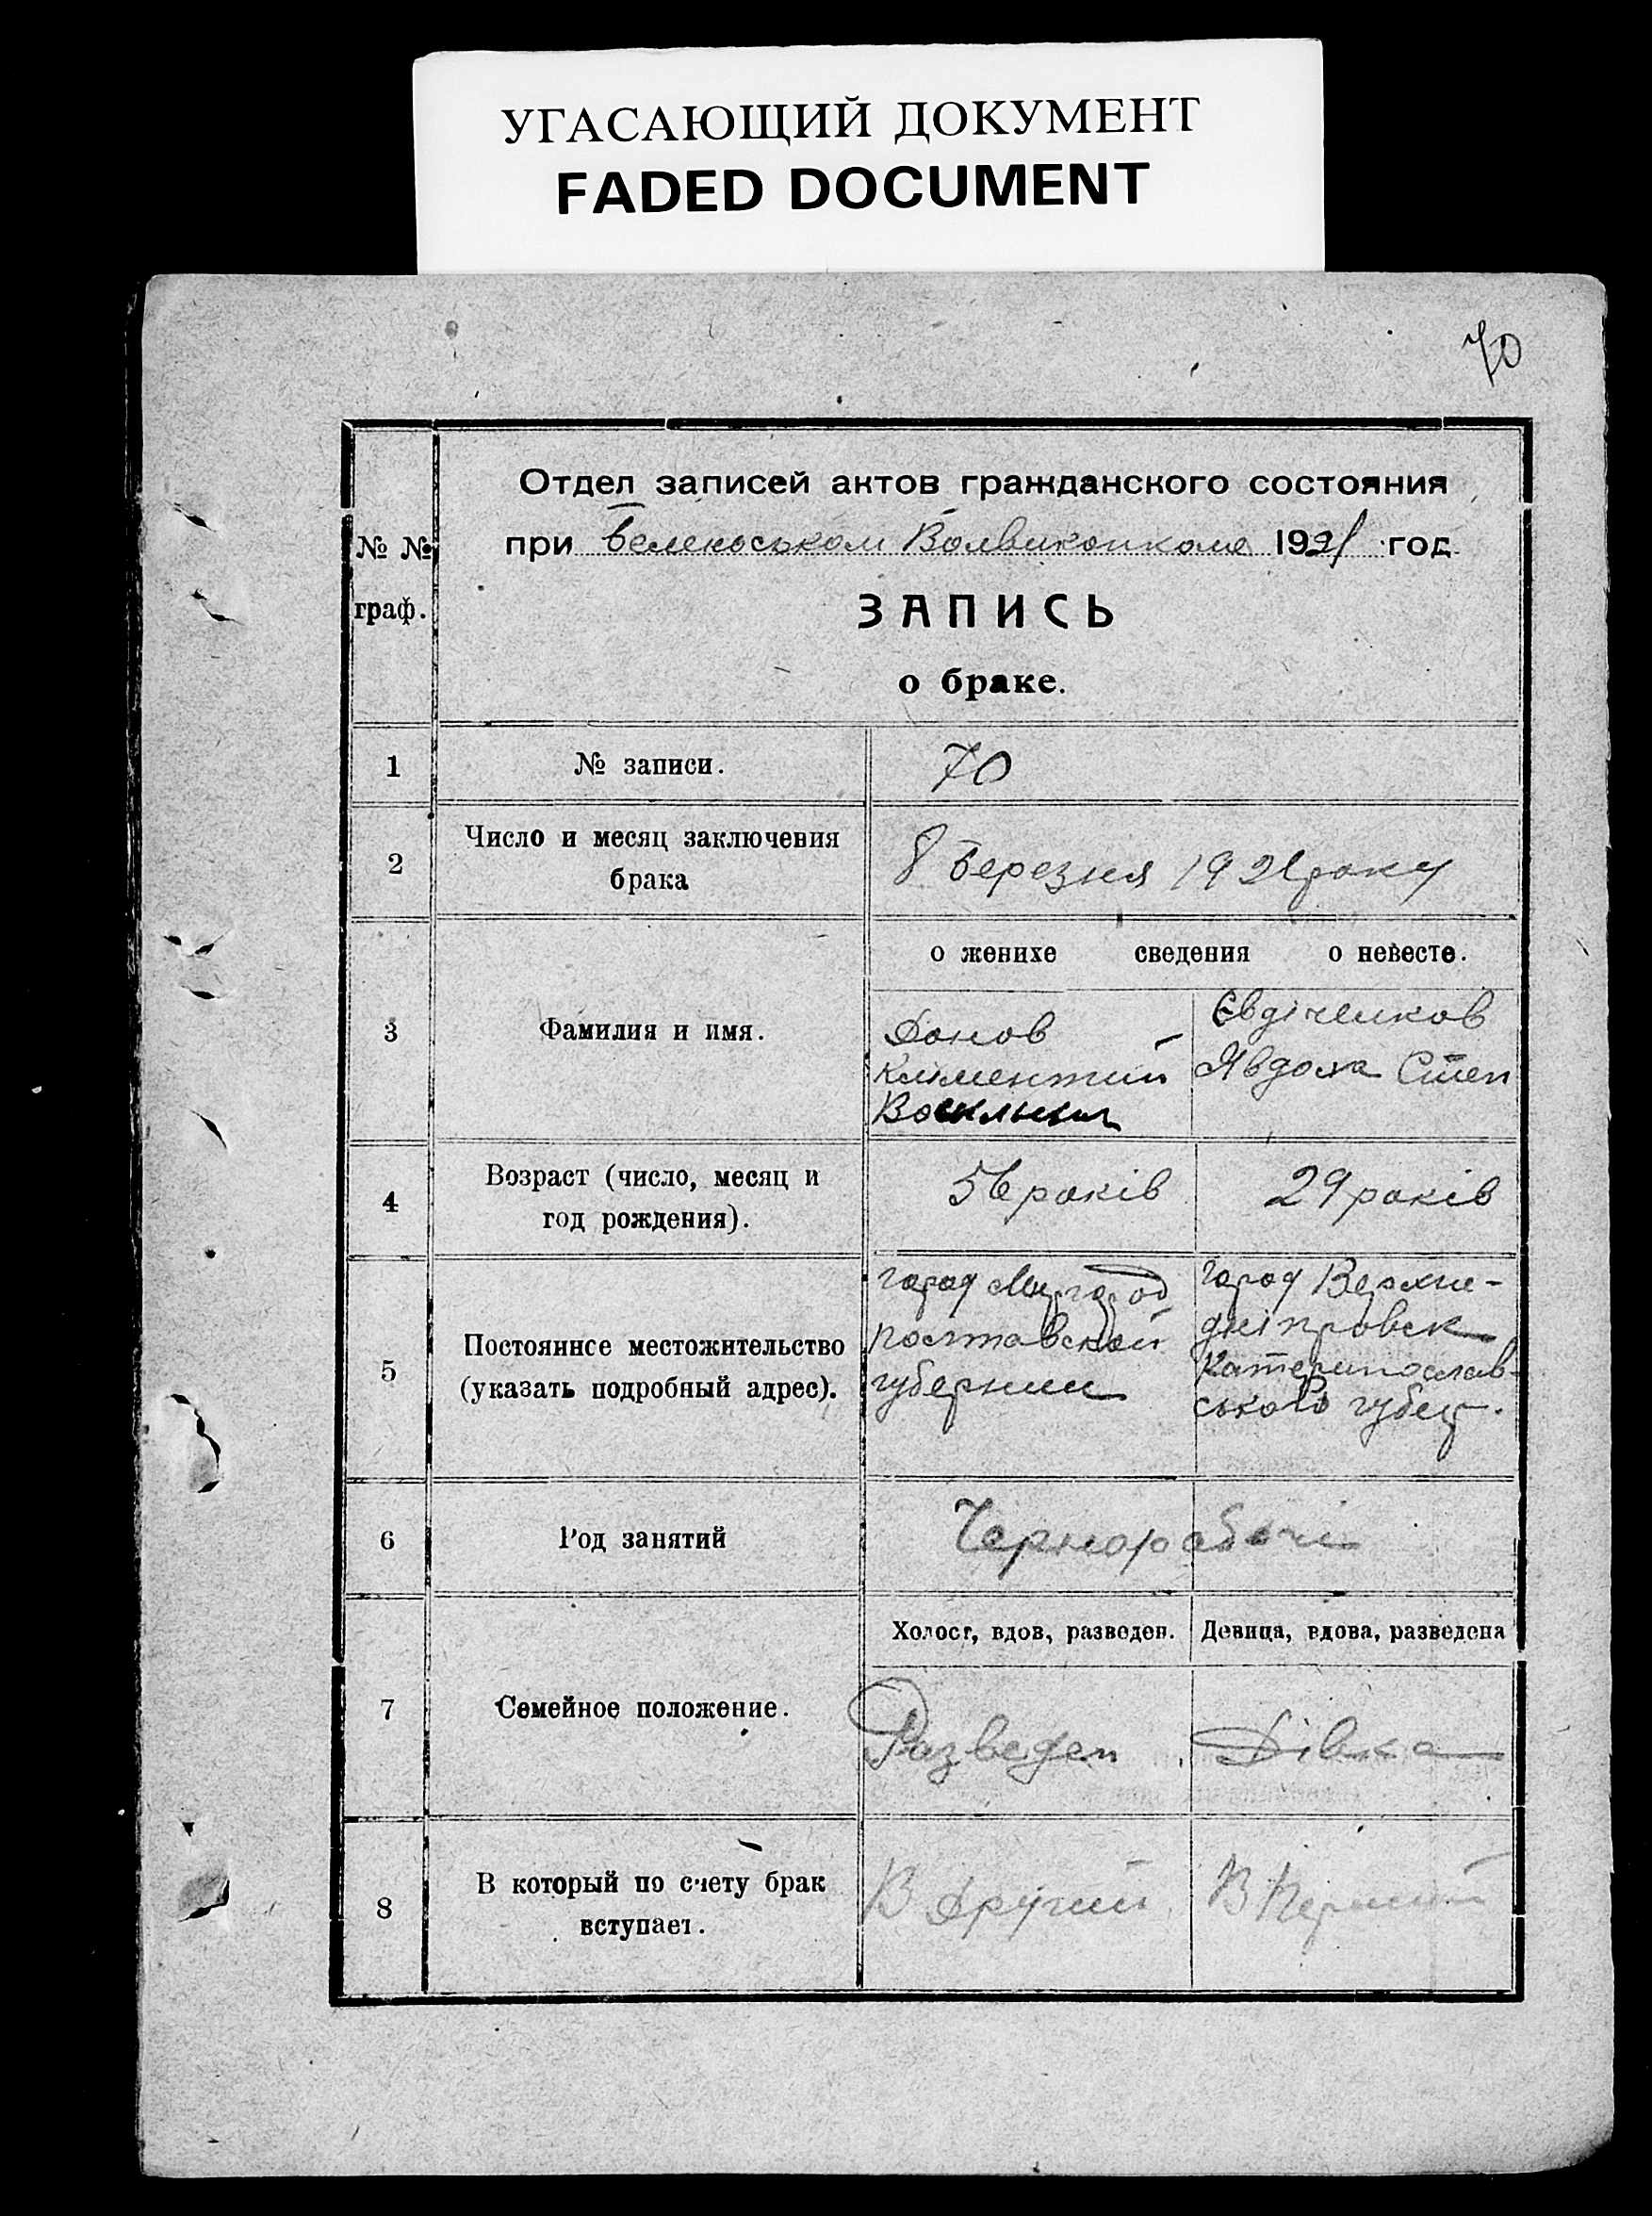 УГАСАЮЩИЙ ДОКУМЕНТ
FADED DOCUMENT
70
№ №
граф.
Отдел записей актов гражданского состояния
при Беленьськом Волвиконкоме 1921 год.
ЗАПИСЬ
о браке.
1
№ записи.
70
2
Число и месяц заключения
брака
8 Березня 1921 року
3
Фамилия и имя.
о женихе сведения о невесте.
Донов
Климентий
Васильев
Євдіченков
Явдоха Степ
4
Возраст (число, месяц и
год рождения).
56 років
29 років
5
Постоянное местожительство
(указать подробный адрес).
город Миргород
Полтавской
губернии
город Верхне-
дніпровск
Катеринослав-
ського губер.
6
Род занятий
Чернорабочі
7
Семейное положение.
Холост, вдов, разведен.
Девица, вдова, разведена
Разведен
Дівка
8
В который по счету брак
вступает.
В Другий
В Перший